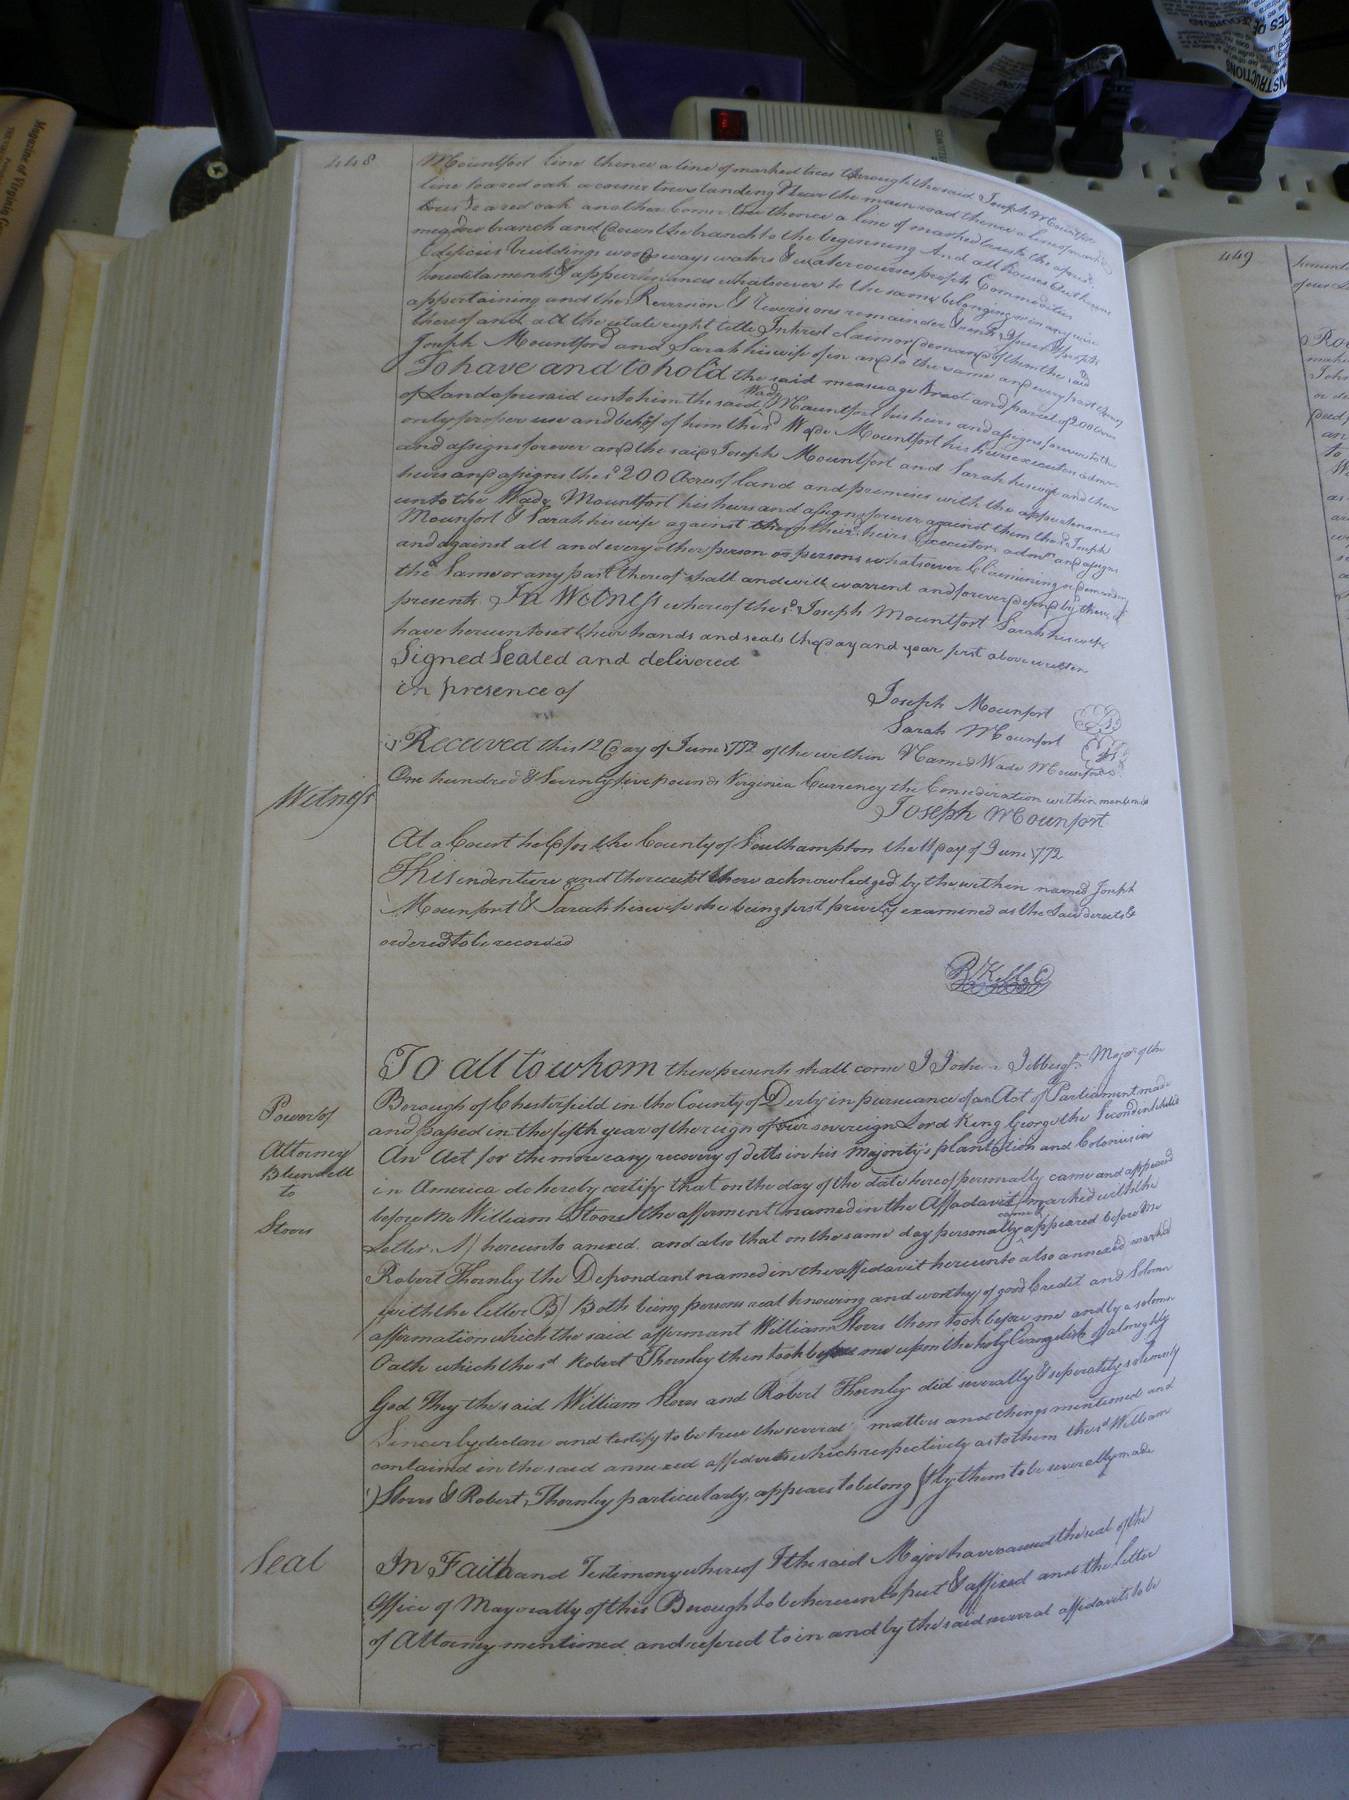 448
Mountfort line thence a line of marked trees through the said Joseph Mountfort
line to a red oak a corner tree standing Near the main road thence a line of marked
trees to a red oak another Corner tree thence a line of marked trees to the afores.d
meadow branch and down the branch to the beginning And all houses Outhouses
Edifices buildings woods ways waters & watercourses profits Commodities
hereditaments & appurtenances whatsoever to the same belonging or in any wise
appertaining and the Reversion & Reversions remainder & rents Issues & profits
thereof and all the estate right title Intrest claim or demand of them the said
Joseph Mountford and Sarah his wife of in and to the same and every part thereof
To have and to hold the said messuage tract and parcel of 200 acres
of Land aforesaid unto him the said Wade Mountfort his heirs and assigns forever to the
only proper use and behoof of him the sd Wade Mountfort his heirs executors admrs
and assigns forever and the said Joseph Mountfort and Sarah his wife and their
heirs and assigns the sd 200 Acres of land and premises with the appurtenances
unto the Wade Mountfort his heirs and assigns forever against them the sd Joseph
Mounfort & Sarah his wife against their heirs Executors admrs and assigns
and against all and every other person or persons whatsoever Claiming or demanding
the Same or any part thereof shall and will warrend and forever defend by these
presents In Witness whereof the sd Joseph Mountfort Sarah his wife
have hereunto set their hands and seals the day and year first above written
Signed Sealed and delivered
in presence of
Joseph Mounfort
Sarah Mounfort
Received this 12 Day of June 1772 of the within Named Wade Mounfort
One hundred & Seventy five pounds Virginia Currency the Consideration within mentioned
Witness
Joseph Mounfort
At a Court held for the County of Southampton the 11 day of June 1772
This indenture and the receipt there acknowledged by the within named Joseph
Mounfort & Sarah his wife she being first privily examined as the Law directs &
ordered to be recorded
To all to whom these presents shall come I Major of the
Borough of Chesterfield in the County of Derby in pursuance of an Act of Parliament made
and passed in the fifth year of the reign of our sovereign Lord King George the Second intituled
An Act for the more easy recovery of detts in his Majority's plantation and Colonies in
in America do hereby certify that on the day of the date hereof personally came and appeared
before Me William Stoors the afferment named in the Affadavit marked with the
Letter A) hereunto anexed and also that on the same day personally came & appeared before Me
Robert Thornley the Depondant named in the affedavit hereunto also annexed marked
with the letter B) Both being persons well knowing and worthy of good Credit and Solomn
affirmation which the said affermant William Stores then took before me and by a solomn
Oath which the sd Robert Thornley then took before me upon the holy Evangelist of almighty
God They the said William Stores and Robert Thornley did severally & seperately solemnly
Sincerly declare and testify to be true the several matters and things mentioned and
contained in the said annexed affedavits which respectively as to them the sd William
Stores & Robert Thornley particularly, appears to belong by them to be severally made
Power of
Attorney
Blundell
to
Stoors
Seal
In Faith and Testimony whereof I the said Major have caused the seal of the
Office of Mayoralty of this Borough to be hereunto put & affixed and the letter
of Attorney mentioned and refered to in and by the said several affedavits to be
449
Magazine of Virginia